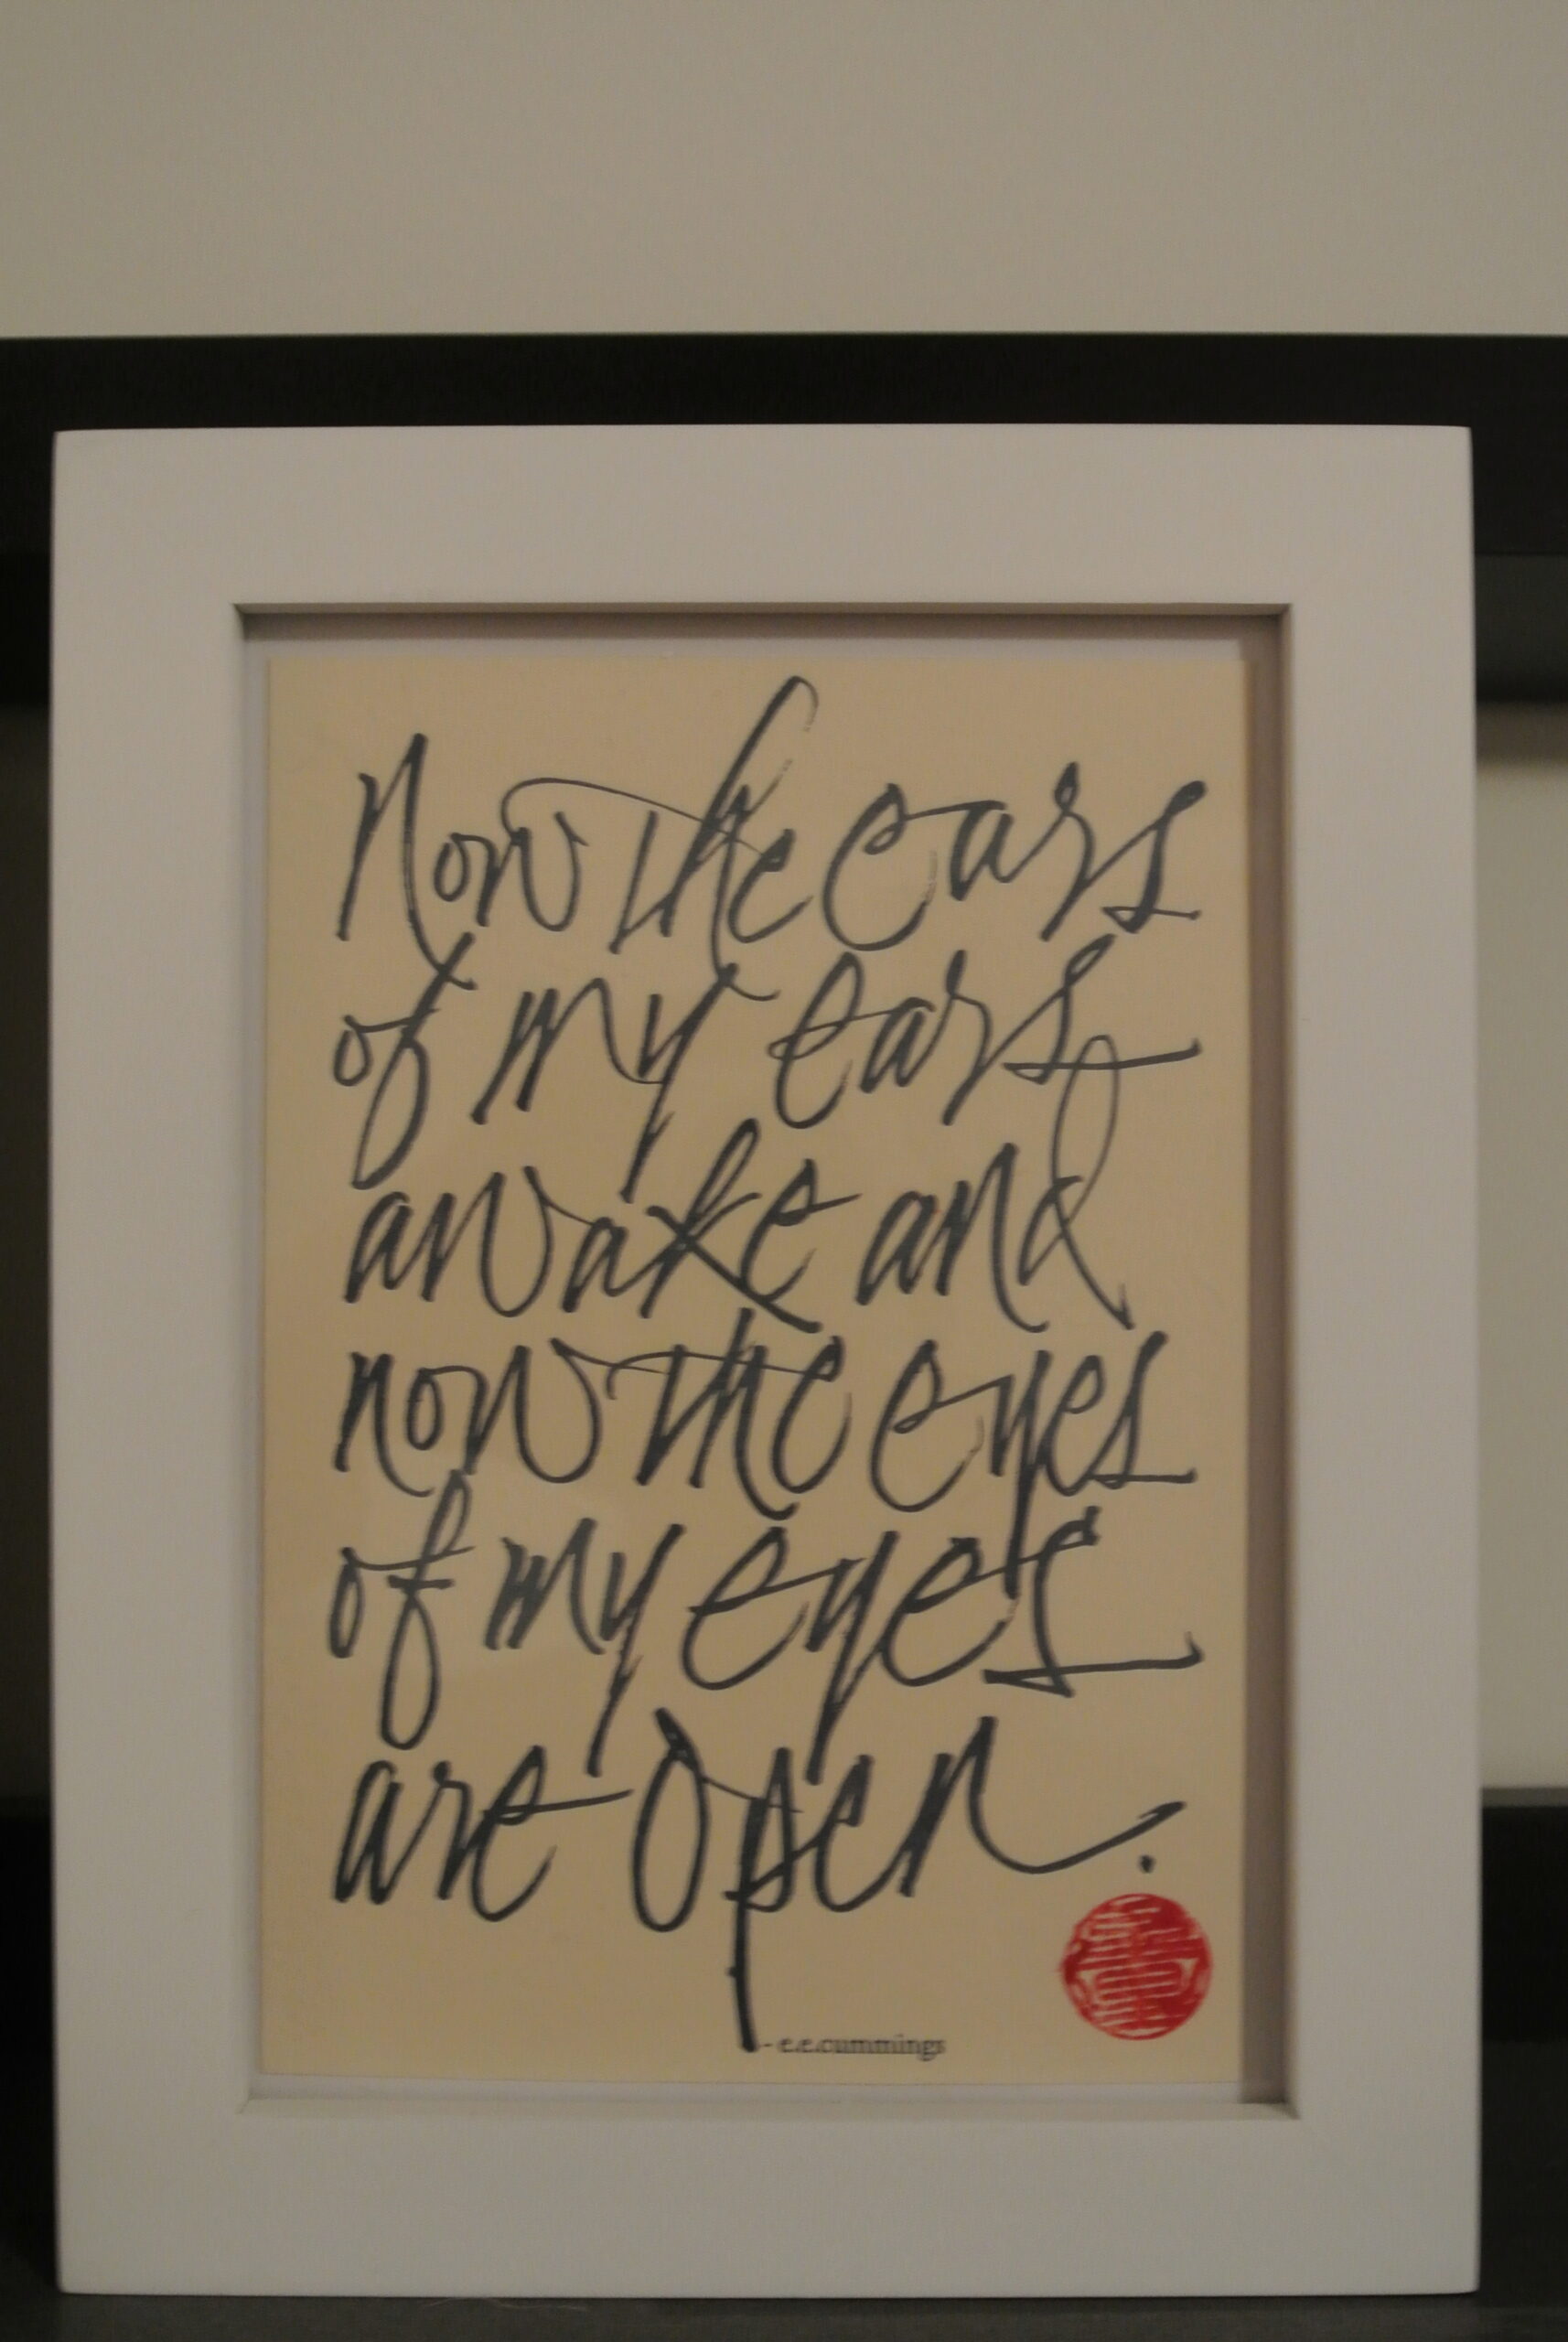 Now the ears
of my ears
awake and
now the eyes
of my eyes
are open.
- e.e.cummings